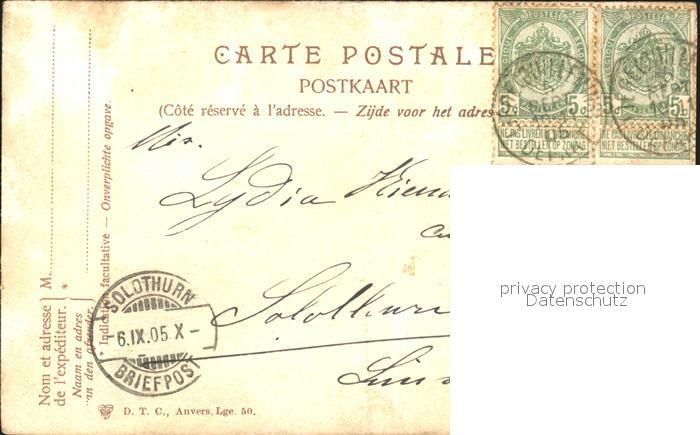 POSTES POSTES
5c 5c
NE PAS LIVRER LE DIMANCHE
NIET BESTELLEN OP ZONDAG
NE PAS LIVRER LE DIMANCHE
NIET BESTELLEN OP ZONDAG
CARTE POSTALE
POSTKAART
(Côté réservé à l'adresse. — Zijde voor het adres
Lydia
Solothurn
SOLOTHURN
-6.IX.05.X-
BRIEFPOST
Nom et adresse
de l'expéditeur.
Naam en adres
van den afzender.
M.
*
* Indication facultative — Onverplichte opgave.
D. T. C., Anvers. Lge. 50.
privacy protection
Datenschutz